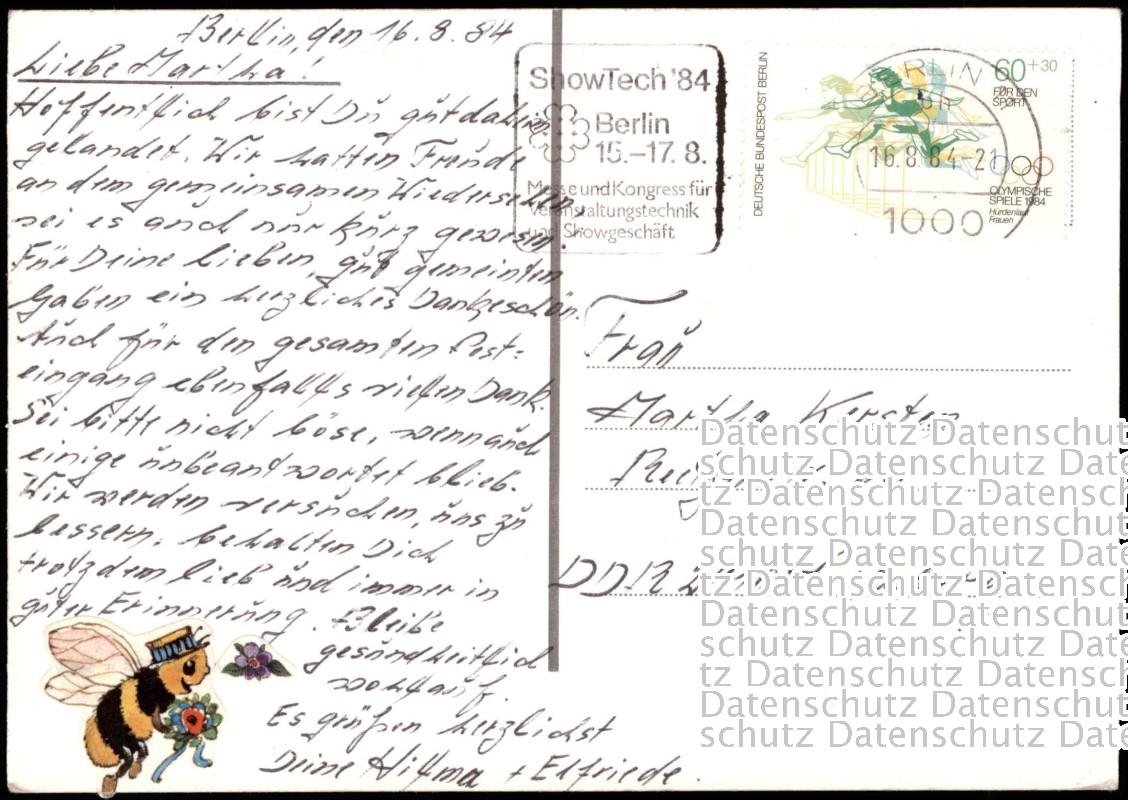 Berlin, den 16.8.84
Liebe Martha!
Hoffentlich bist Du gut daheim
gelandet. Wir hatten Freude
an dem gemeinsamen Wiedersehen
sei es auch nur kurz gewesen.
Für Deine lieben, gut gemeinten
Gaben ein herzliches Dankeschön.
Auch für den gesamten Post=
eingang ebenfalls vielen Dank.
Sei bitte nicht böse, wenn auch
einige unbeantwortet blieb.
Wir werden versuchen, uns zu
bessern. Behalten Dich
trotzdem lieb und immer in
guter Erinnerung. Bleibe
gesundheitlich
wohlauf.
Es grüßen herzlichst
Deine Hilma + Elfriede.
ShowTech '84
Berlin
15.–17. 8.
Messe und Kongress für
Veranstaltungstechnik
und Showgeschäft
DEUTSCHE BUNDESPOST BERLIN
60+30
FÜR DEN
SPORT
OLYMPISCHE
SPIELE 1984
Hürdenlauf
Frauen
BERLIN
16.8.84-21
1000
Frau
Martha Kersten
DDR
Datenschutz Datenschut
schutz Datenschutz Date
tz Datenschutz Datensch
Datenschutz Datenschut
schutz Datenschutz Date
tz Datenschutz Datensch
Datenschutz Datenschut
schutz Datenschutz Date
tz Datenschutz Datensch
Datenschutz Datenschut
schutz Datenschutz Date